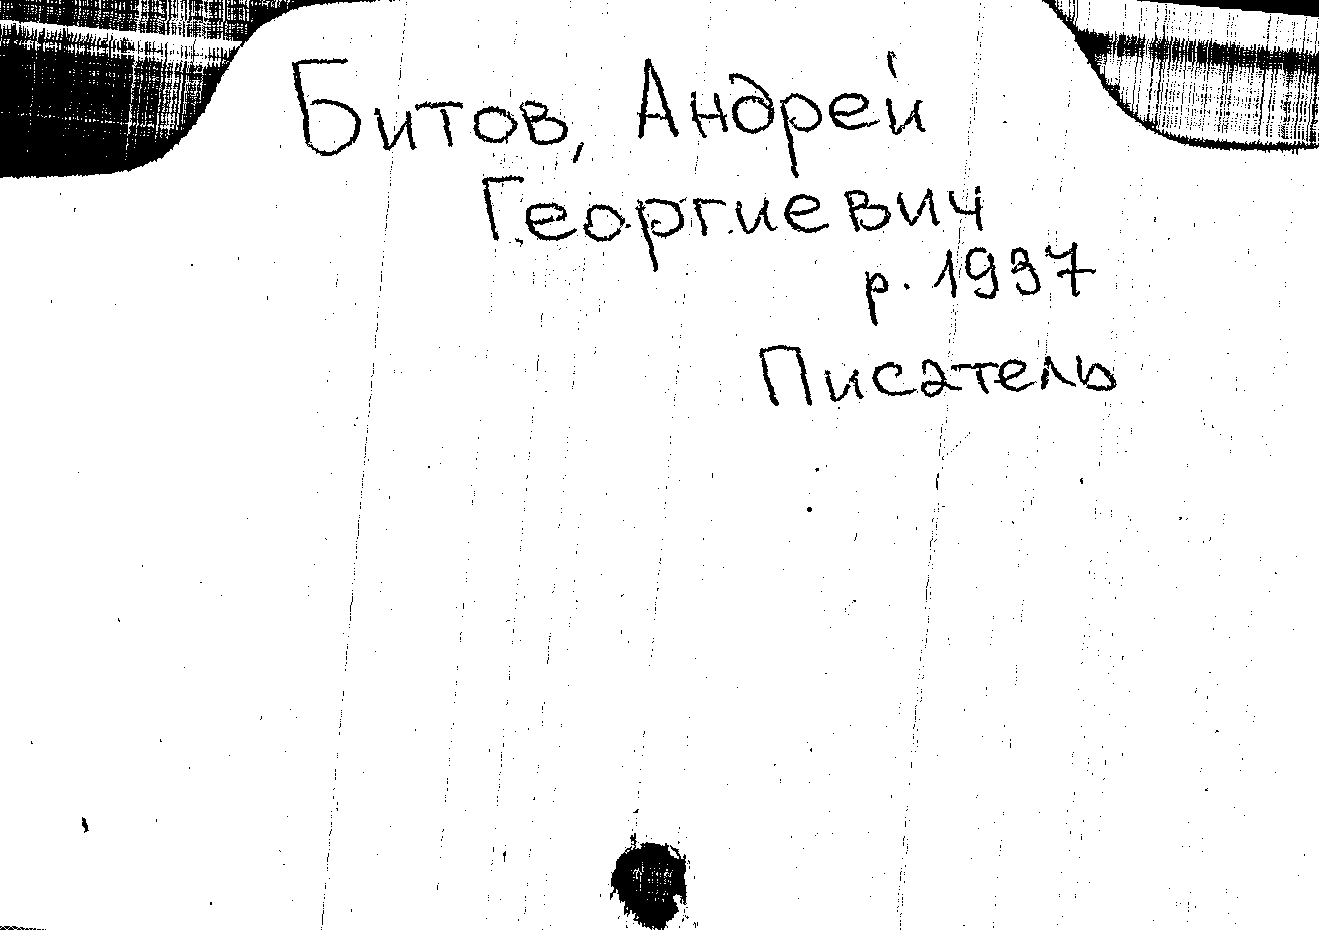 Битов, Андрей
Георгиевич
р. 1937
Писатель